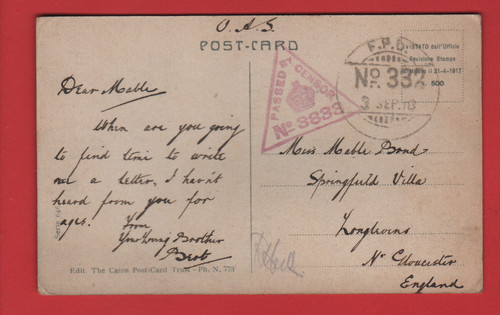 O. A. S.
POST-CARD
Dear Mable
When are you going
to find time to write
me a letter, I havn't
heard from you for
ages.
from
Your loving Brother
Bert
Edit. The Cairo Post-Card Trust - Ph. N. 773
PASSED BY CENSOR
No 3833
F.P.O.
No. 332
3 SEP. 18
VISTATO dall'Ufficio
Revisione Stampa
il 21-4-1917
500
Miss Mable Bond
Springfield Villa
Longlevens
Nr Gloucester
England